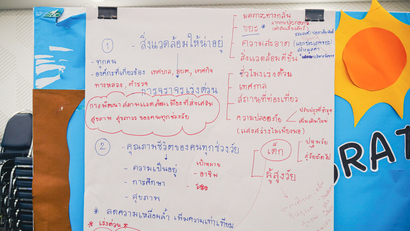 มลภาวะทางกลิ่น
① - สิ่งแวดล้อมให้น่าอยู่
ขยะ
ความสะอาด
สิ่งแวดล้อมดีขึ้น
- ทุกคน
- องค์กรที่เกี่ยวข้อง เทศบาล, อบต, เทศกิจ
ทางหลวง ตำรวจ
การจราจรเร่งด่วน
ชั่วโมงเร่งด่วน
เทศกาล
สถานที่ท่องเที่ยว
ความปลอดภัย
การพัฒนา สภาพแวดล้อมเพื่อส่งเสริม
สุขภาพ สุขภาวะ ของคนทุกช่วงวัย
② คุณภาพชีวิตของคนทุกช่วงวัย
เด็ก
ปฐมวัย
ผู้สูงวัย
- ความเป็นอยู่
- การศึกษา
- สุขภาพ
เป้าหมาย
- อาชีพ
* ลดความเหลื่อมล้ำ เพิ่มความเท่าเทียม
* เร่งด่วน *
RAT